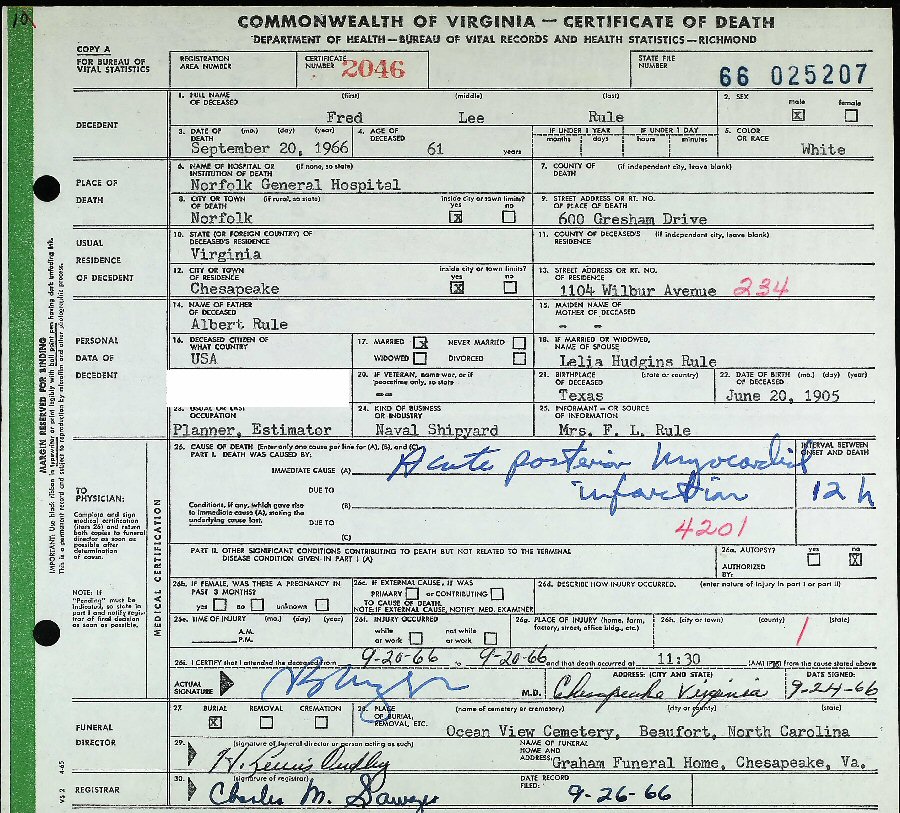 10
COMMONWEALTH OF VIRGINIA — CERTIFICATE OF DEATH
DEPARTMENT OF HEALTH—BUREAU OF VITAL RECORDS AND HEALTH STATISTICS—RICHMOND
COPY A
FOR BUREAU OF VITAL STATISTICS
REGISTRATION AREA NUMBER
CERTIFICATE NUMBER 2046
STATE FILE NUMBER 66 025207
DECEDENT
1. FULL NAME OF DECEASED (first) (middle) (last)
Fred Lee Rule
2. SEX male female
X
3. DATE OF DEATH (mo.) (day) (year)
September 20, 1966
4. AGE OF DECEASED
61 years
IF UNDER 1 YEAR months days
IF UNDER 1 DAY hours minutes
5. COLOR OR RACE
White
PLACE OF DEATH
6. NAME OF HOSPITAL OR INSTITUTION OF DEATH (if none, so state)
Norfolk General Hospital
7. COUNTY OF DEATH (if independent city, leave blank)
8. CITY OR TOWN OF DEATH (if rural, so state)
Norfolk
inside city or town limits? yes no
X
9. STREET ADDRESS OR RT. NO. OF PLACE OF DEATH
600 Gresham Drive
USUAL RESIDENCE OF DECEDENT
10. STATE (OR FOREIGN COUNTRY) OF DECEASED'S RESIDENCE
Virginia
11. COUNTY OF DECEASED'S RESIDENCE (if independent city, leave blank)
12. CITY OR TOWN OF RESIDENCE
Chesapeake
inside city or town limits? yes no
X
13. STREET ADDRESS OR RT. NO. OF RESIDENCE
1104 Wilbur Avenue 234
PERSONAL DATA OF DECEDENT
14. NAME OF FATHER OF DECEASED
Albert Rule
15. MAIDEN NAME OF MOTHER OF DECEASED
- -
16. DECEASED CITIZEN OF WHAT COUNTRY
USA
17. MARRIED X NEVER MARRIED
WIDOWED DIVORCED
18. IF MARRIED OR WIDOWED, NAME OF SPOUSE
Lelia Hudgins Rule
20. IF VETERAN, name war, or if peacetime only, so state
--
21. BIRTHPLACE OF DECEASED (state or country)
Texas
22. DATE OF BIRTH (mo.) (day) (year) OF DECEASED
June 20, 1905
23. USUAL OR LAST OCCUPATION
Planner, Estimator
24. KIND OF BUSINESS OR INDUSTRY
Naval Shipyard
25. INFORMANT — OR SOURCE OF INFORMATION
Mrs. F. L. Rule
MARGIN RESERVED FOR BINDING
IMPORTANT: Use black ribbon in typewriter or print legibly with ball point pen having dark unfading ink.
This is a permanent record and subject to reproduction by microfilm and other photographic process.
TO PHYSICIAN:
Complete and sign medical certification (item 26) and return both copies to funeral director as soon as possible after determination of cause.
NOTE: If "Pending" must be indicated, so state in part I and notify registrar of final decision as soon as possible.
MEDICAL CERTIFICATION
26. CAUSE OF DEATH (Enter only one cause per line for (A), (B), and (C))
PART I. DEATH WAS CAUSED BY:
INTERVAL BETWEEN ONSET AND DEATH
IMMEDIATE CAUSE (A) Acute posterior myocardial
infarction 12 h
DUE TO
Conditions, if any, which gave rise to immediate cause (A), stating the underlying cause last.
(B)
DUE TO
4201
(C)
PART II. OTHER SIGNIFICANT CONDITIONS CONTRIBUTING TO DEATH BUT NOT RELATED TO THE TERMINAL DISEASE CONDITION GIVEN IN PART I (A)
26a. AUTOPSY? yes no
X
AUTHORIZED BY:
26b. IF FEMALE, WAS THERE A PREGNANCY IN PAST 3 MONTHS?
yes no unknown
26c. IF EXTERNAL CAUSE, IT WAS
PRIMARY or CONTRIBUTING
TO CAUSE OF DEATH.
NOTE: IF EXTERNAL CAUSE, NOTIFY MED. EXAMINER
26d. DESCRIBE HOW INJURY OCCURRED. (enter nature of injury in part I or part II)
26e. TIME OF INJURY (mo.) (day) (year)
A.M.
P.M.
26f. INJURY OCCURRED
while at work not while at work
26g. PLACE OF INJURY (home, farm, factory, street, office bldg., etc.)
26h. (city or town) (county) (state)
1
26i. I CERTIFY that I attended the deceased from 9-20-66 to 9-20-66 and that death occurred at 11:30 (AM) (PM) from the cause stated above
ACTUAL SIGNATURE
M.D.
ADDRESS: (CITY AND STATE)
Chesapeake Virginia
DATE SIGNED:
9-24-66
FUNERAL DIRECTOR
27. BURIAL REMOVAL CREMATION
X
28. PLACE OF BURIAL, REMOVAL, ETC. (name of cemetery or crematory) (city or county) (state)
Ocean View Cemetery, Beaufort, North Carolina
29. (signature of funeral director or person acting as such)
H. Lewis Dudley
NAME OF FUNERAL HOME AND ADDRESS:
Graham Funeral Home, Chesapeake, Va.
REGISTRAR
30. (signature of registrar)
Charles M. Sawyer
DATE RECORD FILED: 9-26-66
VS 2 4-65